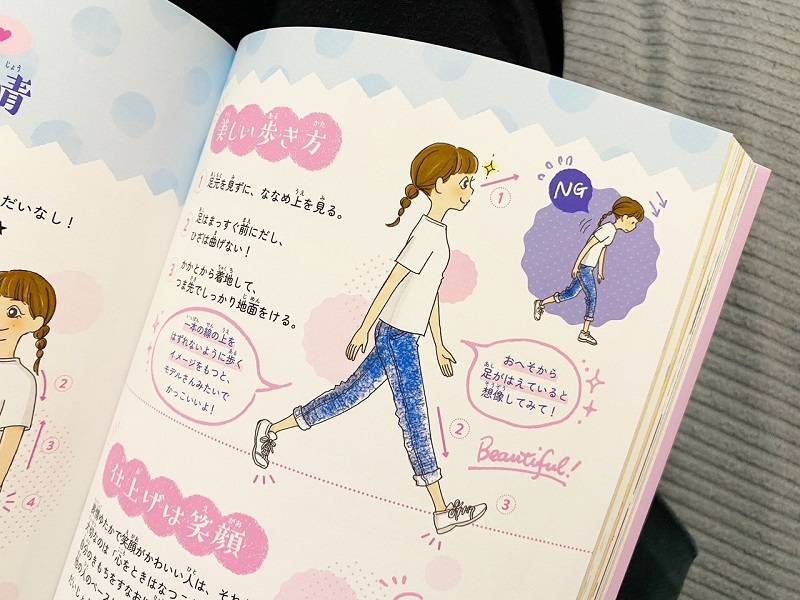 青
だいなし！
②
③
④
美しい歩き方
1 足元を見ずに、ななめ上を見る。
2 足はまっすぐ前にだし、
ひざは曲げない！
3 かかとから着地して、
つま先でしっかり地面をける。
一本の線の上を
はずれないように歩く
イメージをもつと、
モデルさんみたいで
かっこいいよ！
①
NG
おへそから
足がはえていると
想像してみて！
②
Beautiful!
③
仕上げは笑顔
情ゆたかで笑顔がかわいい人は、それ
大切なのは「心をときはなつこ
自分のきもちをすなおに